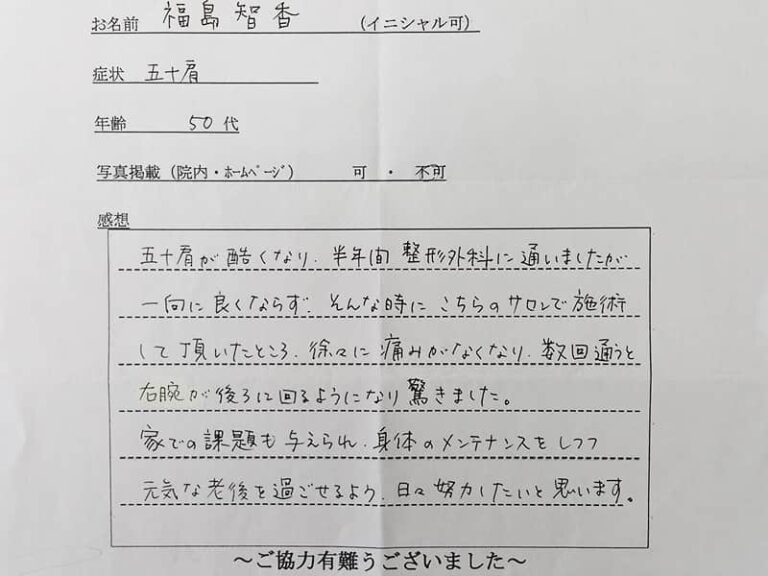 お名前 福島智香 (イニシャル可)
症状 五十肩
年齢 50代
写真掲載(院内・ホームページ) 可 ・ 不可
感想
五十肩が酷くなり、半年間 整形外科に通いましたが
一向に良くならず、そんな時に こちらのサロンで施術
して頂いたところ、徐々に痛みがなくなり、数回通うと
右腕が後ろに回るようになり驚きました。
家での課題も与えられ、身体のメンテナンスをしつつ
元気な老後を過ごせるよう、日々努力したいと思います。
～ご協力有難うございました～